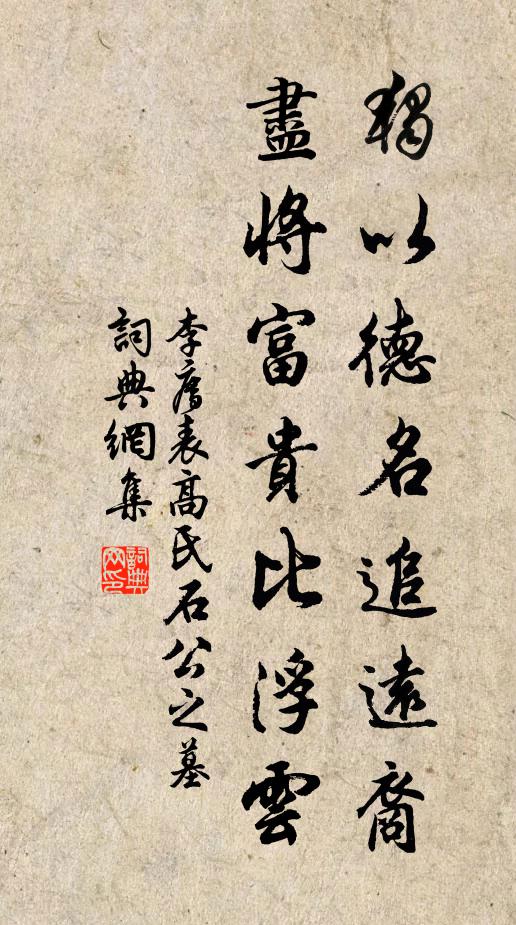 獨以德名追遠裔
盡將富貴比浮雲
李廌表高氏石公之墓
詞典網集
詞典網印